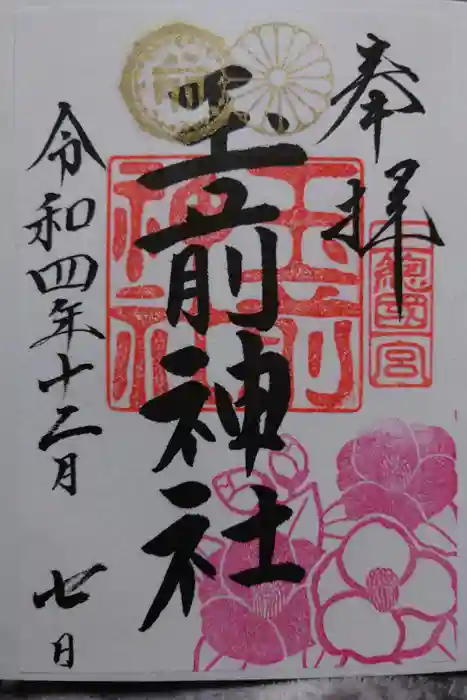 奉拝
總國宮
玉前神社
玉前神社
令和四年十二月 七日